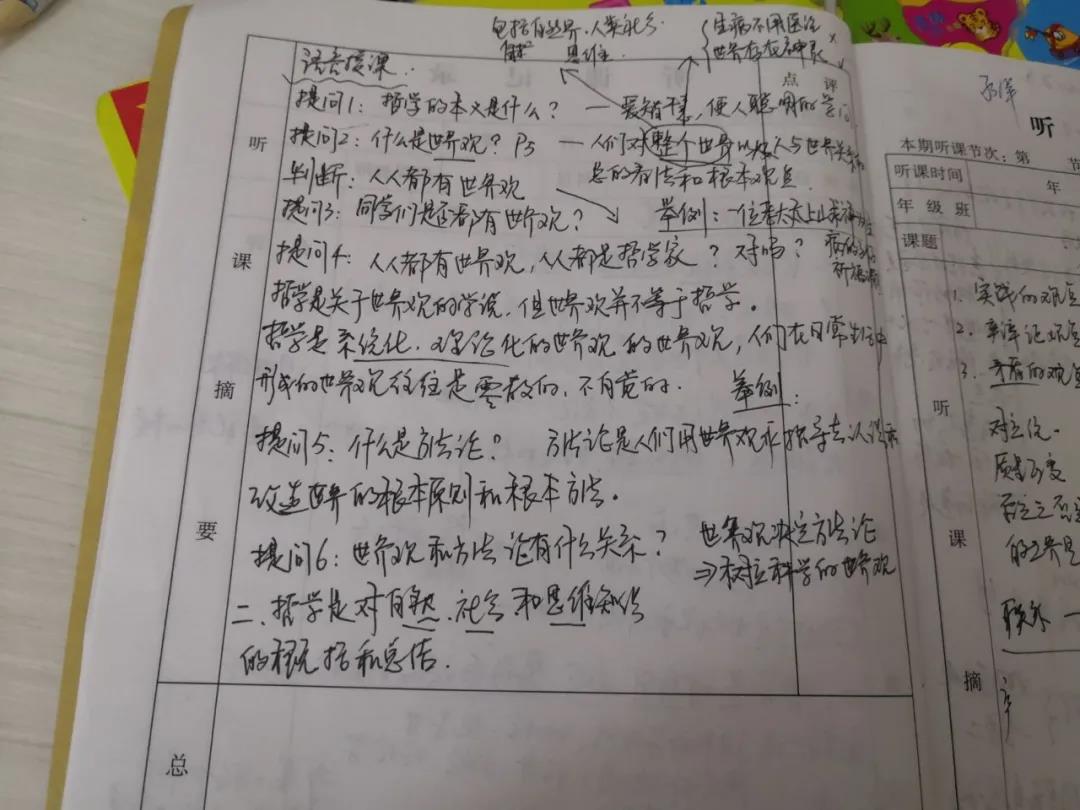 包括自然界、人类社会
思维
生病不用医治
世界存在神灵
语音授课.
点评
提问1: 哲学的本义是什么? — 爱智慧, 使人聪明的学问
提问2: 什么是世界观? P3 — 人们对整个世界以及人与世界关系的
总的看法和根本观点.
判断: 人人都有世界观
提问3: 同学们是否都有世界观? 举例: 一位老太太上山
提问4: 人人都有世界观, 人人都是哲学家? 对吗?
哲学是关于世界观的学说, 但世界观并不等于哲学。
哲学是系统化、理论化的世界观的世界观, 人们在日常生活中
形成的世界观往往是零散的, 不自觉的. 举例:
提问5: 什么是方法论? 方法论是人们用世界观来指导去认识和
改造世界的根本原则和根本方法。
提问6: 世界观和方法论有什么关系? 世界观决定方法论
⇒树立科学的世界观
二、哲学是对自然、社会和思维知识
的概括和总结.
听课摘要
总
听
本期听课节次: 第 节
听课时间 年
年级班
课题
1. 实践的观点
2. 辩证
3. 矛盾的观点
对立统一
质量互变
否定之否定
联系
听课摘